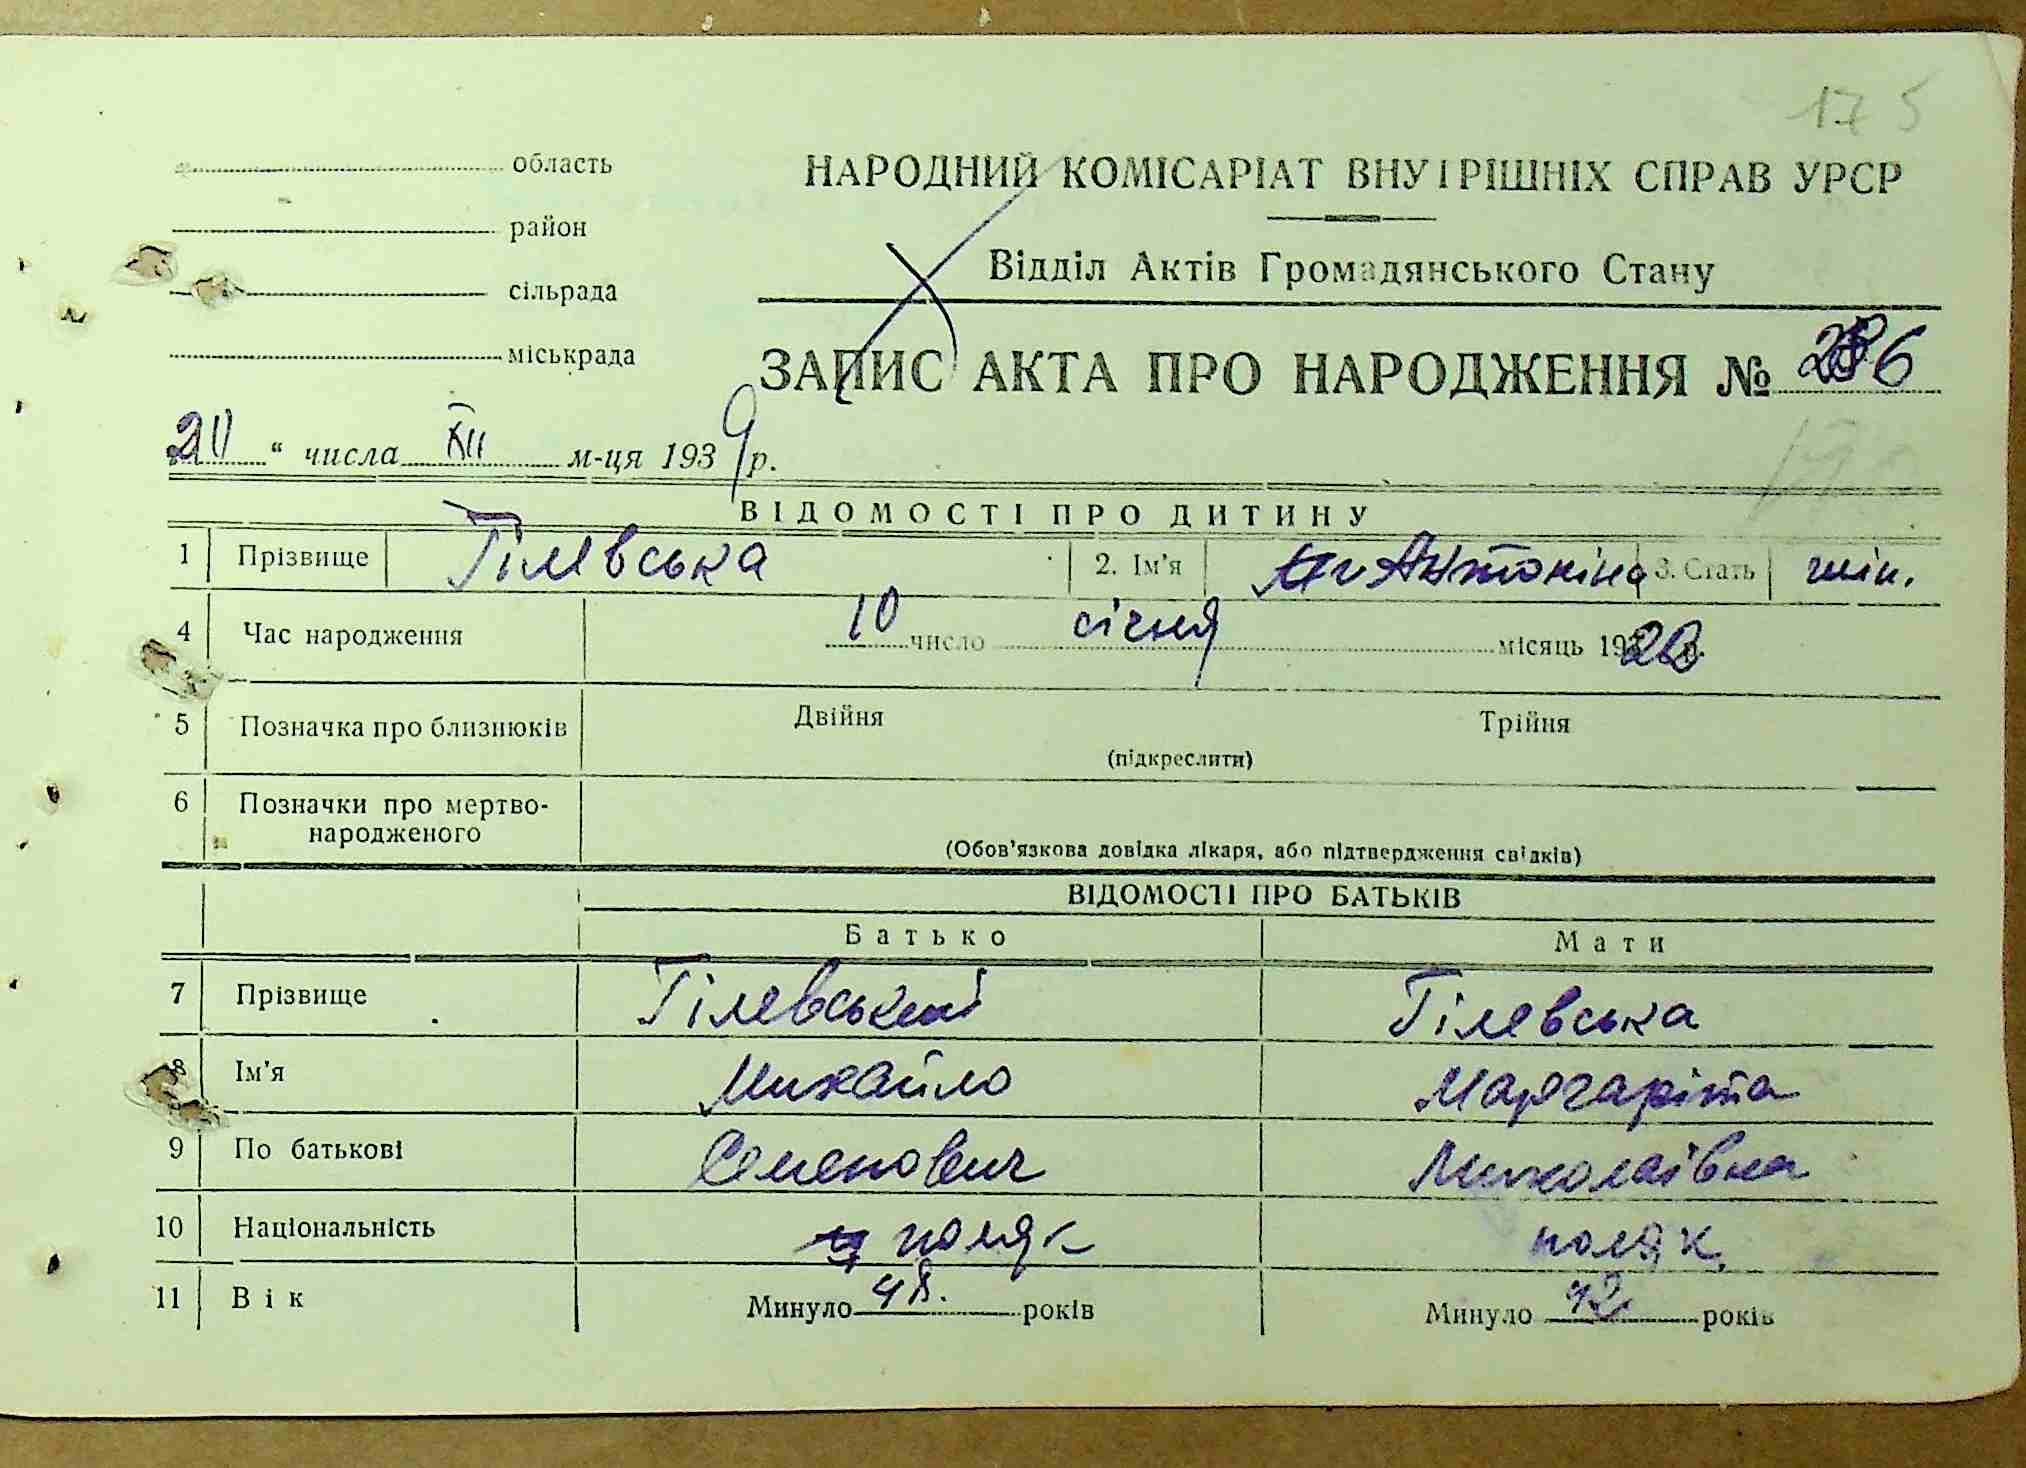 175
область
район
сільрада
міськрада
НАРОДНИЙ КОМІСАРІАТ ВНУТРІШНІХ СПРАВ УРСР
Відділ Актів Громадянського Стану
ЗАПИС АКТА ПРО НАРОДЖЕННЯ № 286
20 " числа XII м-ця 1939 р.
ВІДОМОСТІ ПРО ДИТИНУ
1 Прізвище Гілевська 2. Ім'я Антоніна 3. Стать жін.
4 Час народження 10 число січня місяць 1923 р.
5 Позначка про близнюків Двійня Трійня
(підкреслити)
6 Позначки про мертво-
народженого
(Обов'язкова довідка лікаря, або підтвердження свідків)
ВІДОМОСТІ ПРО БАТЬКІВ
Батько Мати
7 Прізвище Гілевський Гілевська
8 Ім'я Михайло Маргаріта
9 По батькові Семенович Миколаївна
10 Національність поляк поляк
11 Вік Минуло 48. років Минуло 42 років